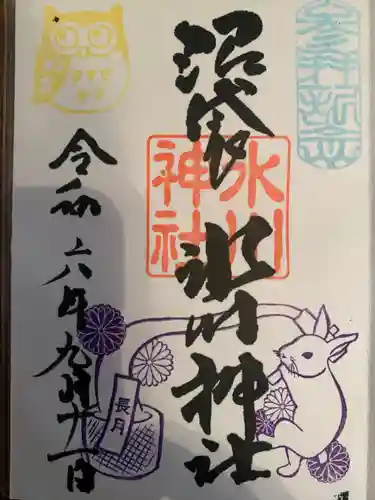 沼袋
氷川神社
氷川
神社
令和六年九月廿一日
長月